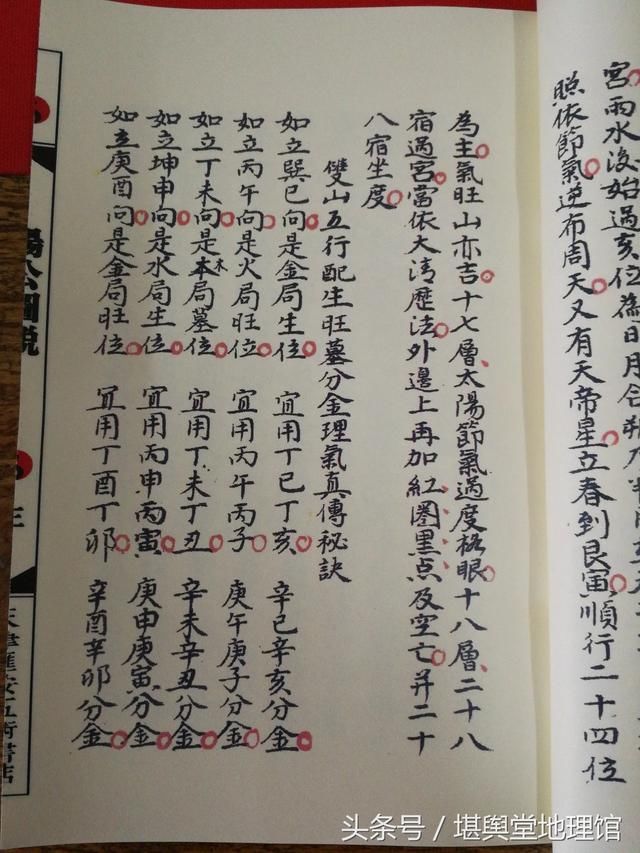 宮雨水後始過亥位為日月合朔
照依節氣逆布周天又有天帝星立春到艮寅順行二十四位
為主氣旺山亦吉十七層太陽節氣過度格眼十八層二十八
宿過宮當依大清歷法外邊上再加紅圈黑点及空亡并二十
八宿坐度
雙山五行配生旺墓分金理氣真傳秘訣
如立巽巳向是金局生位 宜用丁巳丁亥 辛巳辛亥分金
如立丙午向是火局旺位 宜用丙午丙子 庚午庚子分金
如立丁未向是本木局墓位 宜用丁未丁丑 辛未辛丑分金
如立坤申向是水局生位 宜用丙申丙寅 庚申庚寅分金
如立庚酉向是金局旺位 宜用丁酉丁卯 辛酉辛卯分金
楊公圖說
头条号/堪舆堂地理馆